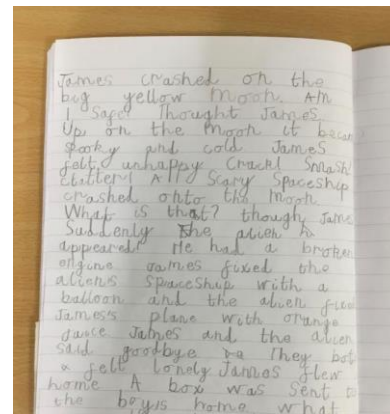 James crashed on the
big yellow moon. Am
I safe? thought James.
Up on the moon it
spooky and cold James
felt unhappy Crack! Smash!
Clatter! A scary spaceship
crashed onto the moon
What is that? though Jame
Suddenly the alien
appeared! He had a broken
engine James fixed the
aliens spaceship with a
balloon and the alien
James's plane with orange
juice James and the alien
said goodbye They bot
felt lonely James flew
home A box was sent to
the boys home what